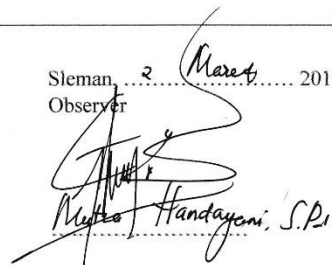 Sleman, 2 Maret 201
Observer
Mytra Handayani, S.Pd